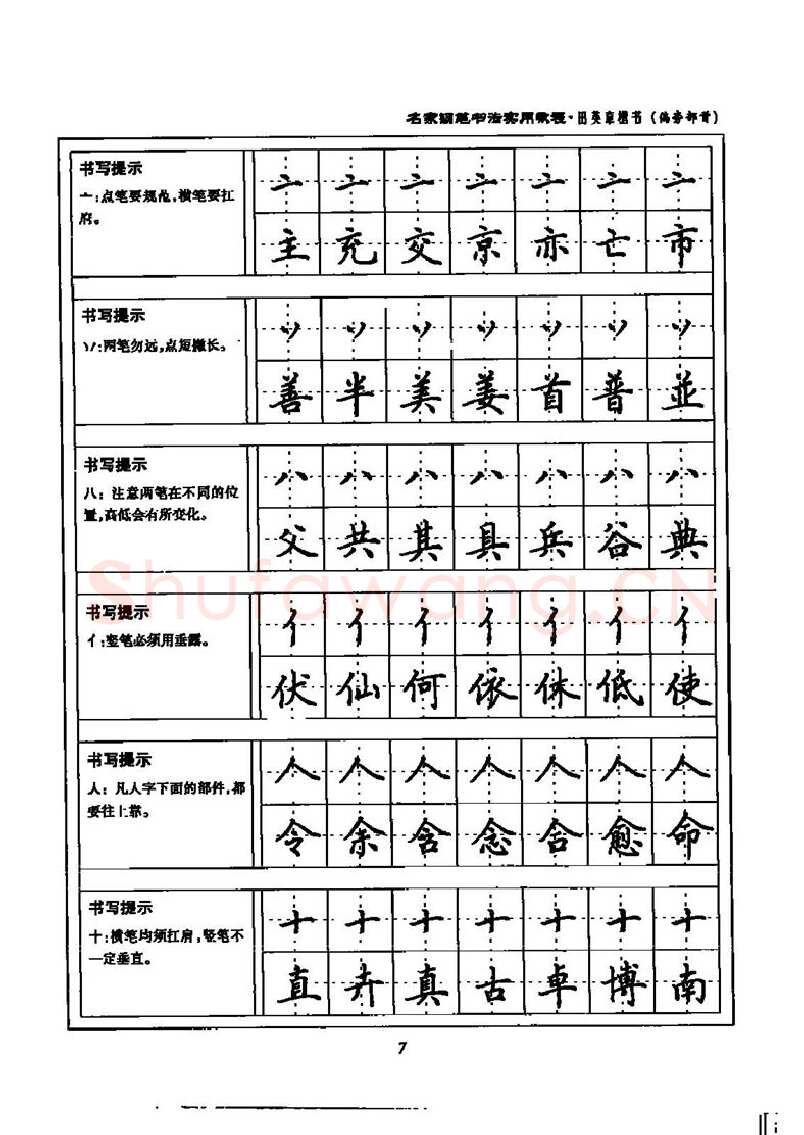 名家钢笔书法实用教程·田英章楷书(偏旁部首)
书写提示
亠:点笔要规范,横笔要扛
肩。
亠 亠 亠 亠 亠 亠 亠
主 充 交 京 亦 亡 市
书写提示
丷:两笔勿远,点短撇长。
丷 丷 丷 丷 丷 丷 丷
善 半 美 姜 首 普 並
书写提示
八:注意两笔在不同的位
置,高低会有所变化。
八 八 八 八 八 八 八
父 共 其 具 兵 谷 典
Shufawang.CN
书写提示
亻:竖笔必须用垂露。
亻 亻 亻 亻 亻 亻 亻
伏 仙 何 依 休 低 使
书写提示
人:凡人字下面的部件,都
要往上靠。
人 人 人 人 人 人 人
令 余 含 念 舍 愈 命
书写提示
十:横笔均须扛肩,竖笔不
一定垂直。
十 十 十 十 十 十 十
直 卉 真 古 卓 博 南
7